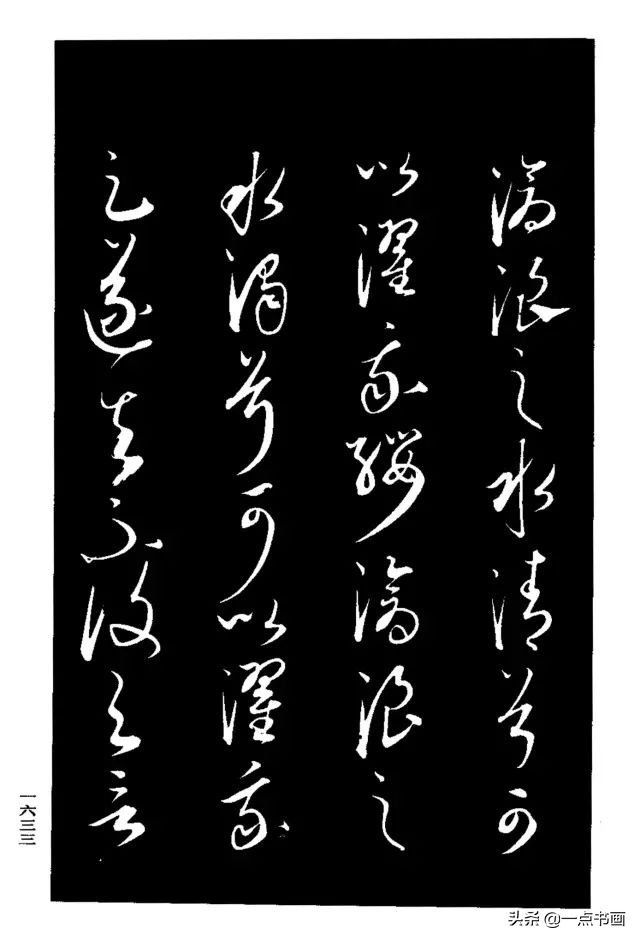 滄浪之水清兮可
以濯我纓滄浪之
水濁兮可以濯我
足遂去不復與言
一六三三
头条 @一点书画